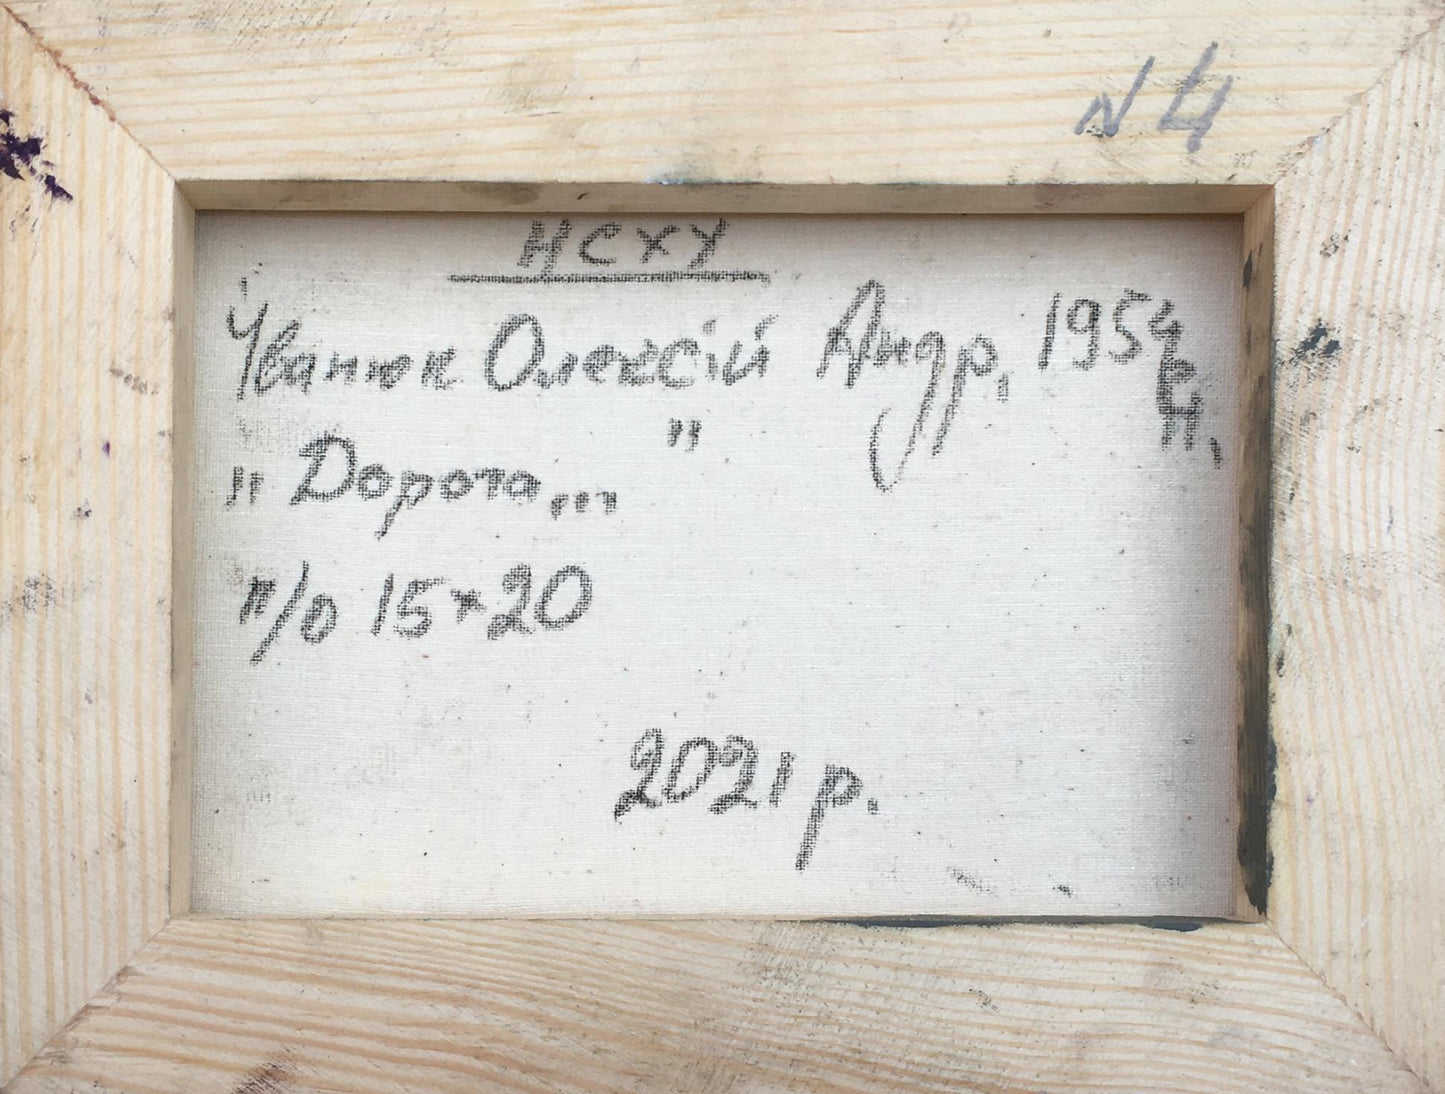 N 4
НСХУ
Іванюк Олексій Андр, 1954 р.н.
"
„ Дорога „"
п/о 15×20
2021 р.